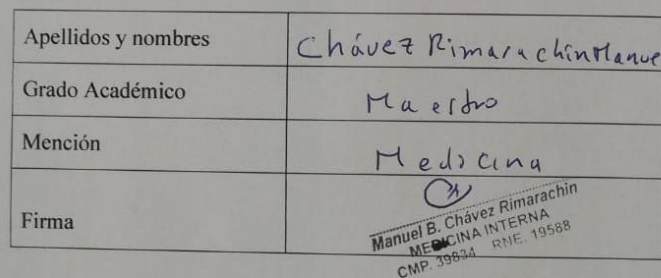 Apellidos y nombres Chávez Rimarachin Manue
Grado Académico Maestro
Mención Medicina
Firma
Manuel B. Chávez Rimarachin
MEDICINA INTERNA
CMP. 39834 RNE. 19588